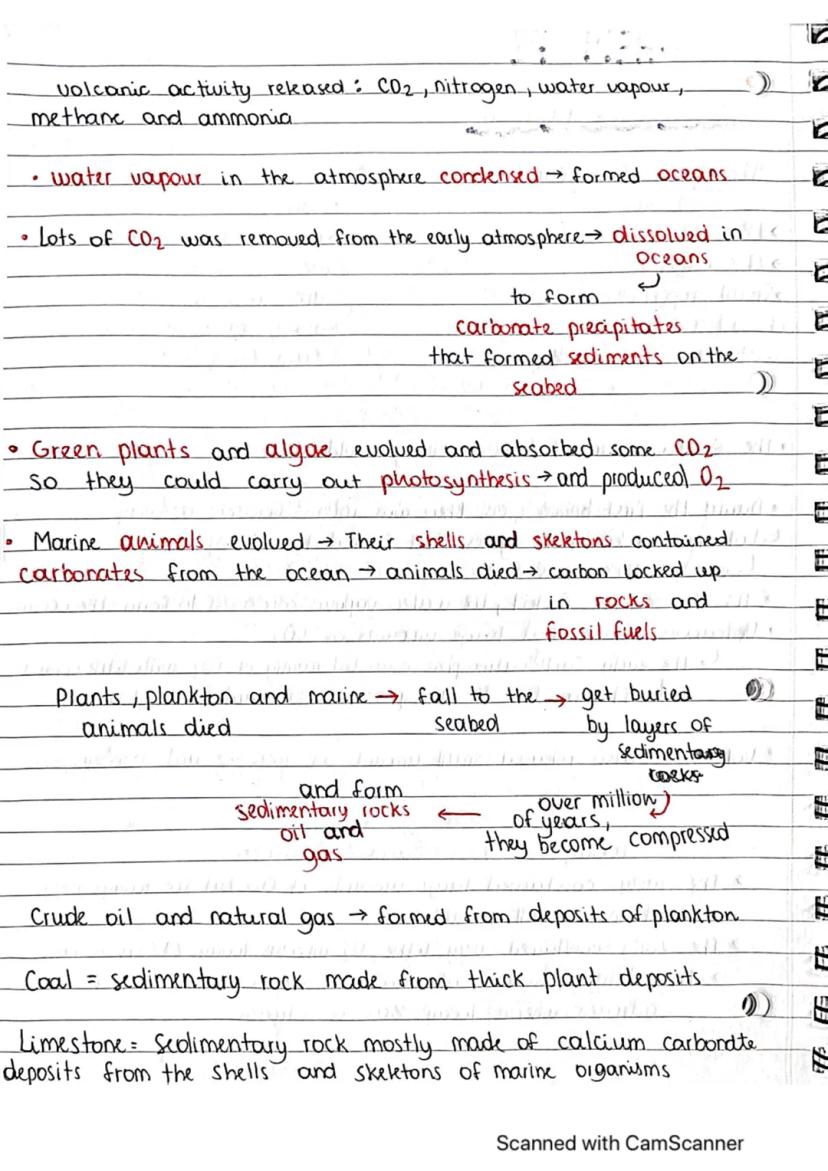 volcanic activity released : CO2, nitrogen, water vapour,
methane and ammonia
• water vapour in the atmosphere condensed → formed oceans
• Lots of CO2 was removed from the early atmosphere → dissolved in
oceans
to form
carbonate precipitates
that formed sediments on the
seabed
• Green plants and algae evolved and absorbed some CO2
so they could carry out photosynthesis → and produced O2
• Marine animals evolved → Their shells and skeletons contained
carbonates from the ocean → animals died → carbon locked up
in rocks and
fossil fuels
Plants, plankton and marine → fall to the → get buried
animals died seabed by layers of
sedimentary
rocks
over million
of years,
they become compressed
←
and form
sedimentary rocks
oil and
gas
Crude oil and natural gas → formed from deposits of plankton
Coal = sedimentary rock made from thick plant deposits
Limestone = Sedimentary rock mostly made of calcium carbonate
deposits from the shells and skeletons of marine organisms
Scanned with CamScanner